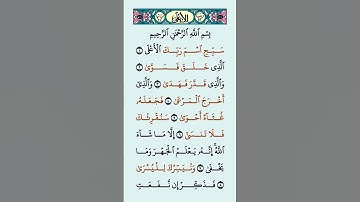 الأعلى
بِسْمِ ٱللَّهِ ٱلرَّحْمَٰنِ ٱلرَّحِيمِ
سَبِّحِ ٱسْمَ رَبِّكَ ٱلْأَعْلَى ۝١
ٱلَّذِى خَلَقَ فَسَوَّىٰ ۝٢
وَٱلَّذِى قَدَّرَ فَهَدَىٰ ۝٣ وَٱلَّذِىٓ
أَخْرَجَ ٱلْمَرْعَىٰ ۝٤ فَجَعَلَهُۥ
غُثَآءً أَحْوَىٰ ۝٥ سَنُقْرِئُكَ
فَلَا تَنسَىٰٓ ۝٦ إِلَّا مَا شَآءَ
ٱللَّهُ إِنَّهُۥ يَعْلَمُ ٱلْجَهْرَ وَمَا
يَخْفَىٰ ۝٧ وَنُيَسِّرُكَ لِلْيُسْرَىٰ
۝٨ فَذَكِّرْ إِن نَّفَعَتِ